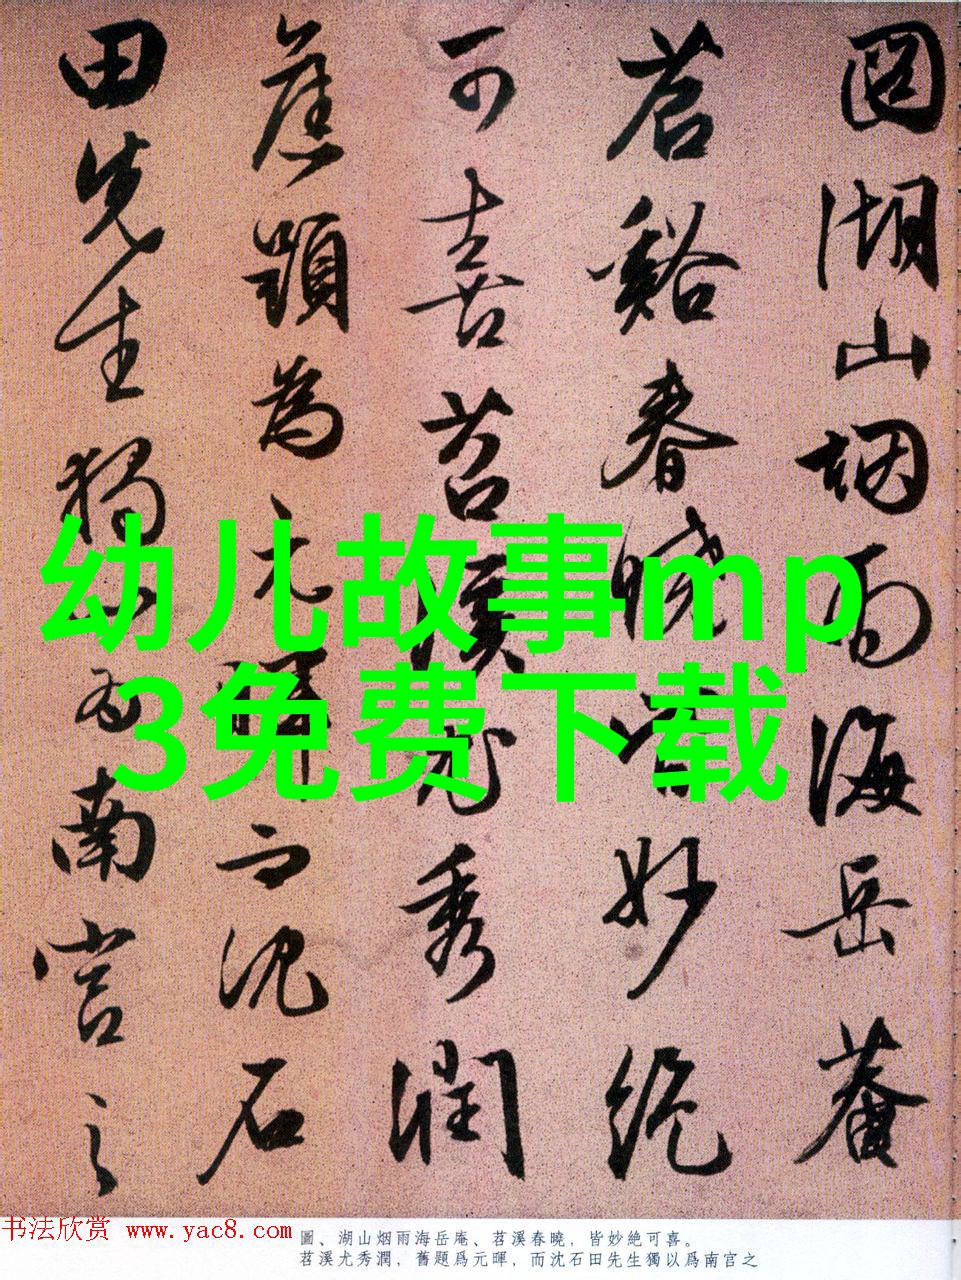 圖湖山烟雨海岳菴
苕谿春曉皆妙絶
可喜苕溪尤秀潤
舊題為元暉而沈石
田先生獨以為南宫之
幼儿故事mp
3免费下载
书法欣赏 www.yac8.com
圖、湖山烟雨海岳庵、苕溪春曉，皆妙絶可喜。
苕溪尤秀潤，舊題爲元暉，而沈石田先生獨以爲南宫之